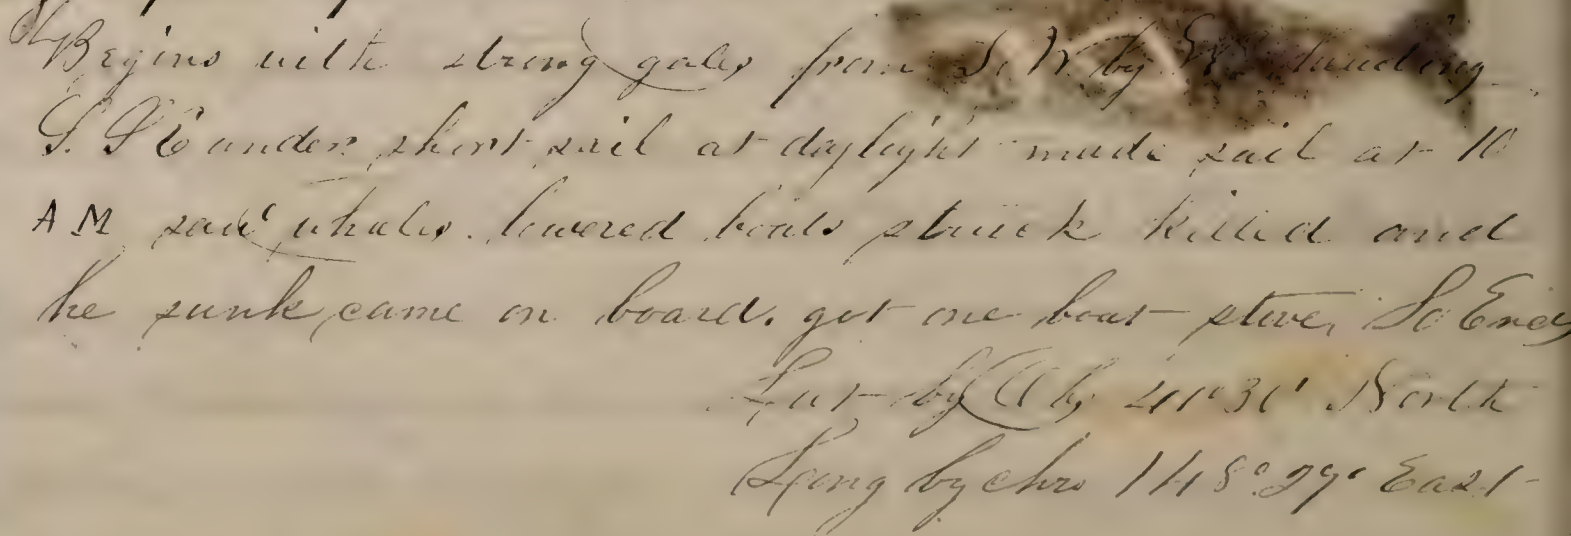 Begins with strong gales from S. W by W heading
S. S E under short sail at daylight made sail at 10
A M saw whales. lowered boats struck killed and
he sunk came on board. got one boat stove. So Ends
Lat by Ob 30' North
Long by chro 148° 29' East